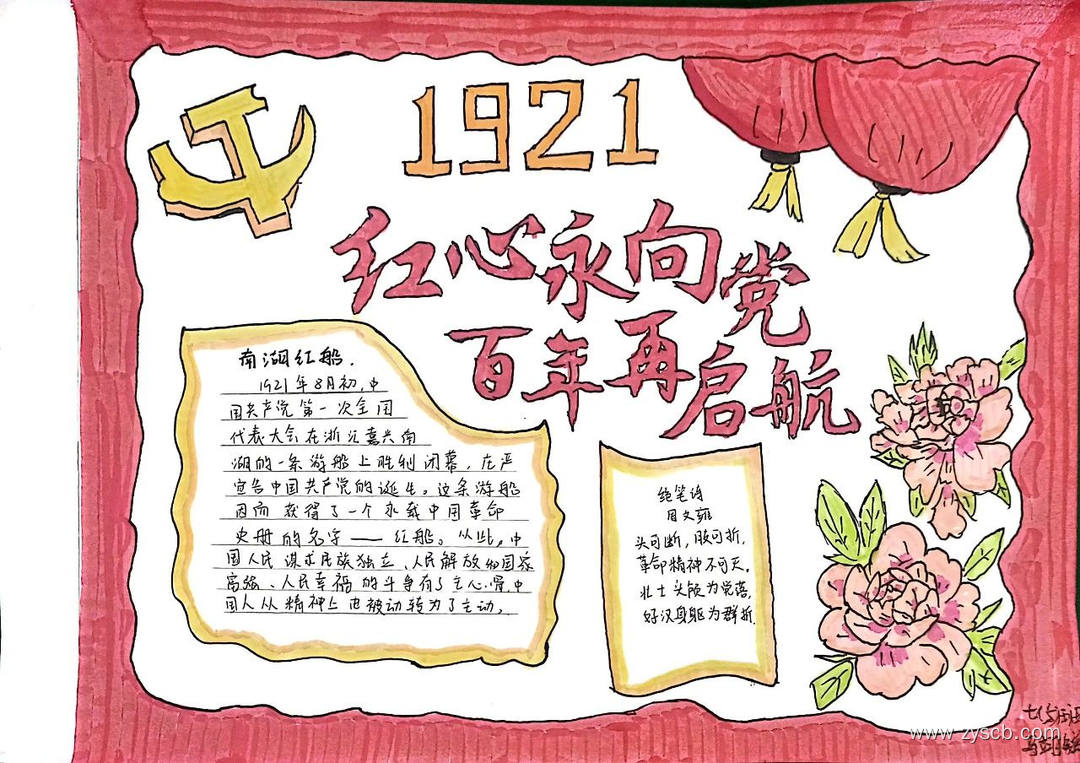 1921
红心永向党
百年再启航
南湖红船.
1921年8月初,中
国共产党第一次全国
代表大会在浙江嘉兴南
湖的一条游船上胜利闭幕,庄严
宣告中国共产党的诞生。这条游船
因而获得了一个永载中国革命
史册的名字——红船。从此,中
国人民谋求民族独立、人民解放和国家
富强、人民幸福的斗争有了主心骨,中
国人从精神上由被动转为了主动.
绝笔诗
周文雍
头可断,肢可折,
革命精神不可灭。
壮士头颅为党落,
好汉身躯为群折.
www.zyscb.com